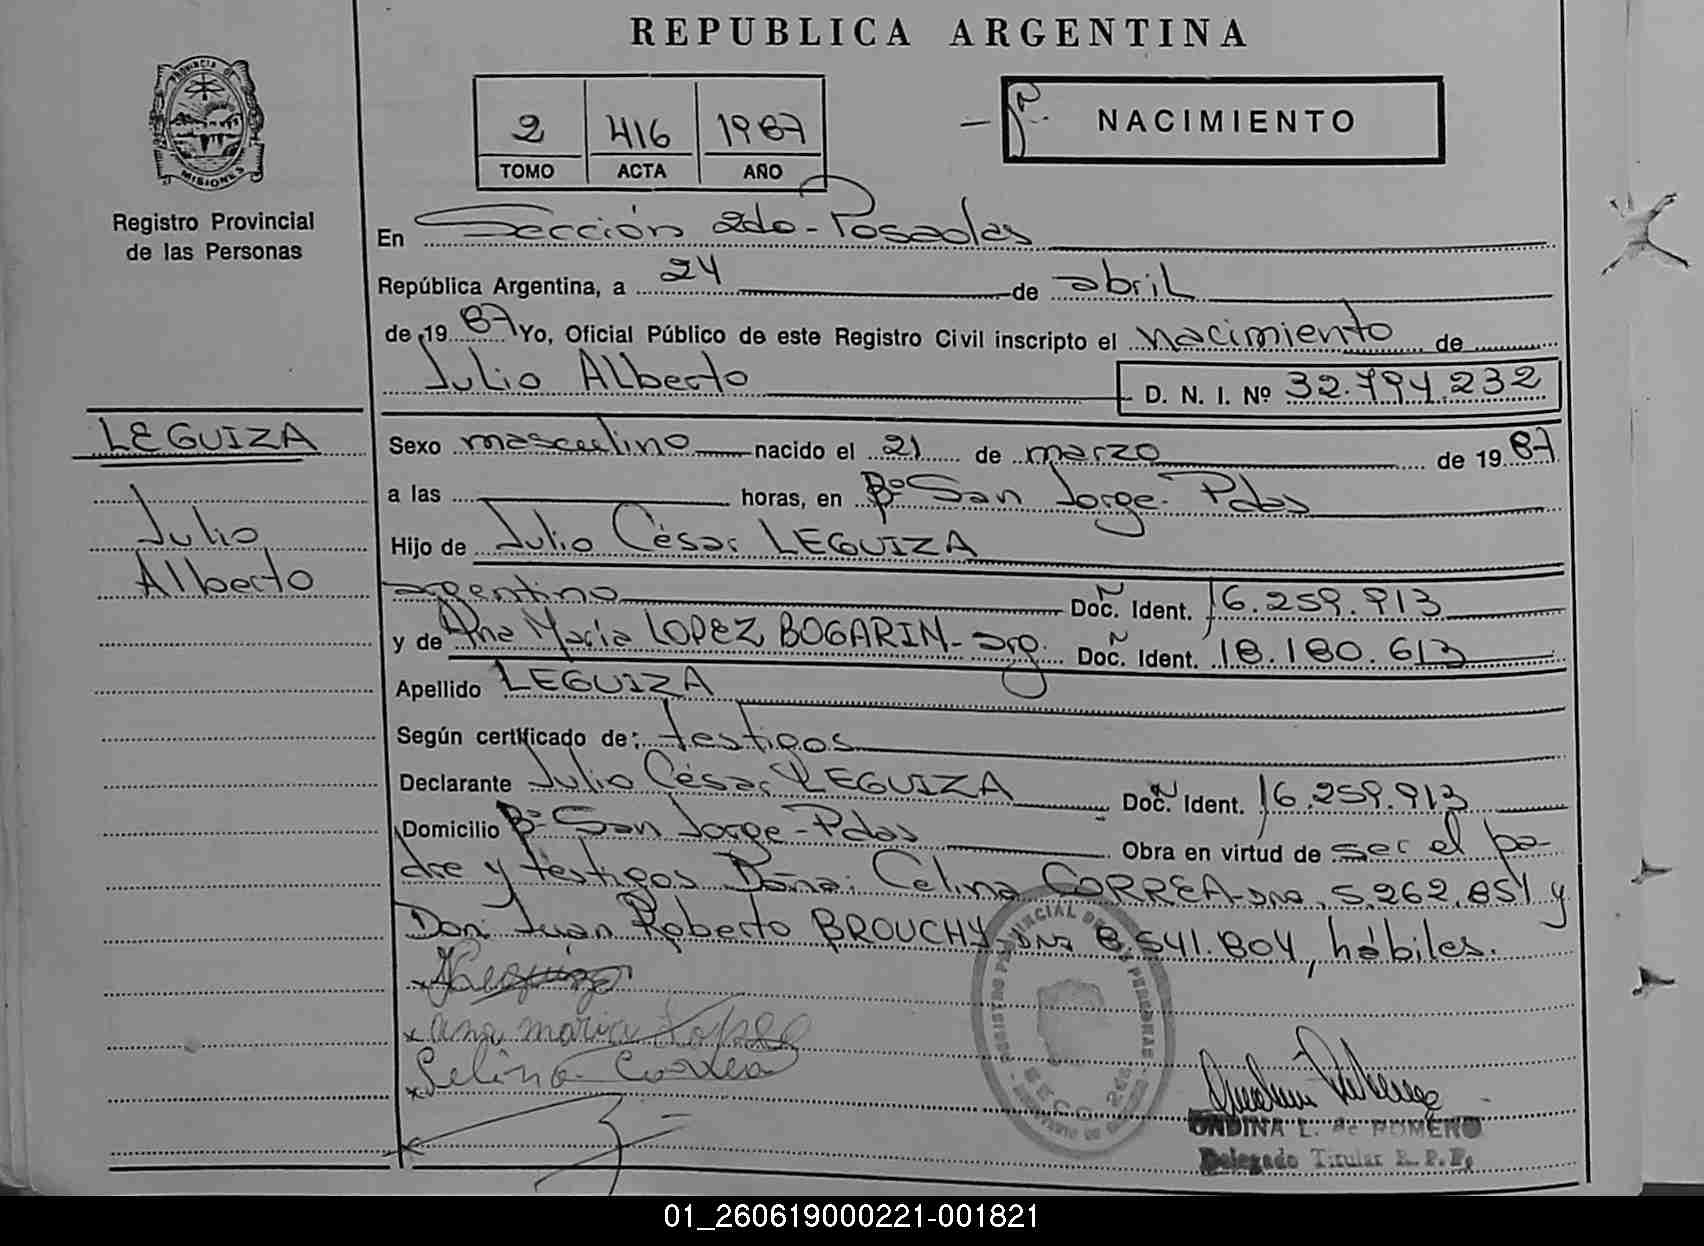 REPUBLICA ARGENTINA
PROVINCIA DE
MISIONES
Registro Provincial
de las Personas
2 416 1987
TOMO ACTA AÑO
NACIMIENTO
En Sección 2do-Posadas
República Argentina, a 24 de abril
de 19 87 Yo, Oficial Público de este Registro Civil inscripto el nacimiento de
Julio Alberto D. N. I. Nº 32.794.232
LEGUIZA
Julio
Alberto
Sexo masculino nacido el 21 de marzo de 19 87
a las horas, en Bº San Jorge-Pdas
Hijo de Julio César LEGUIZA
argentino Doc. Ident. 16.259.913
y de Ana María LOPEZ BOGARIN-arg. Doc. Ident. 18.180.613
Apellido LEGUIZA
Según certificado de: testigos
Declarante Julio César LEGUIZA Doc. Ident. 16.259.913
Domicilio Bº San Jorge-Pdas Obra en virtud de ser el pa-
dre y testigos Doña: Celina CORREA-DNI. 5.262.851 y
Don: Juan Roberto BROUCHY-DNI 8.541.804, hábiles.
ana maria Lopez
Selina Correa
REGISTRO PROVINCIAL DE LAS PERSONAS
ONDINA L. de ROMERO
Delegado Titular R. P. P.
01_260619000221-001821